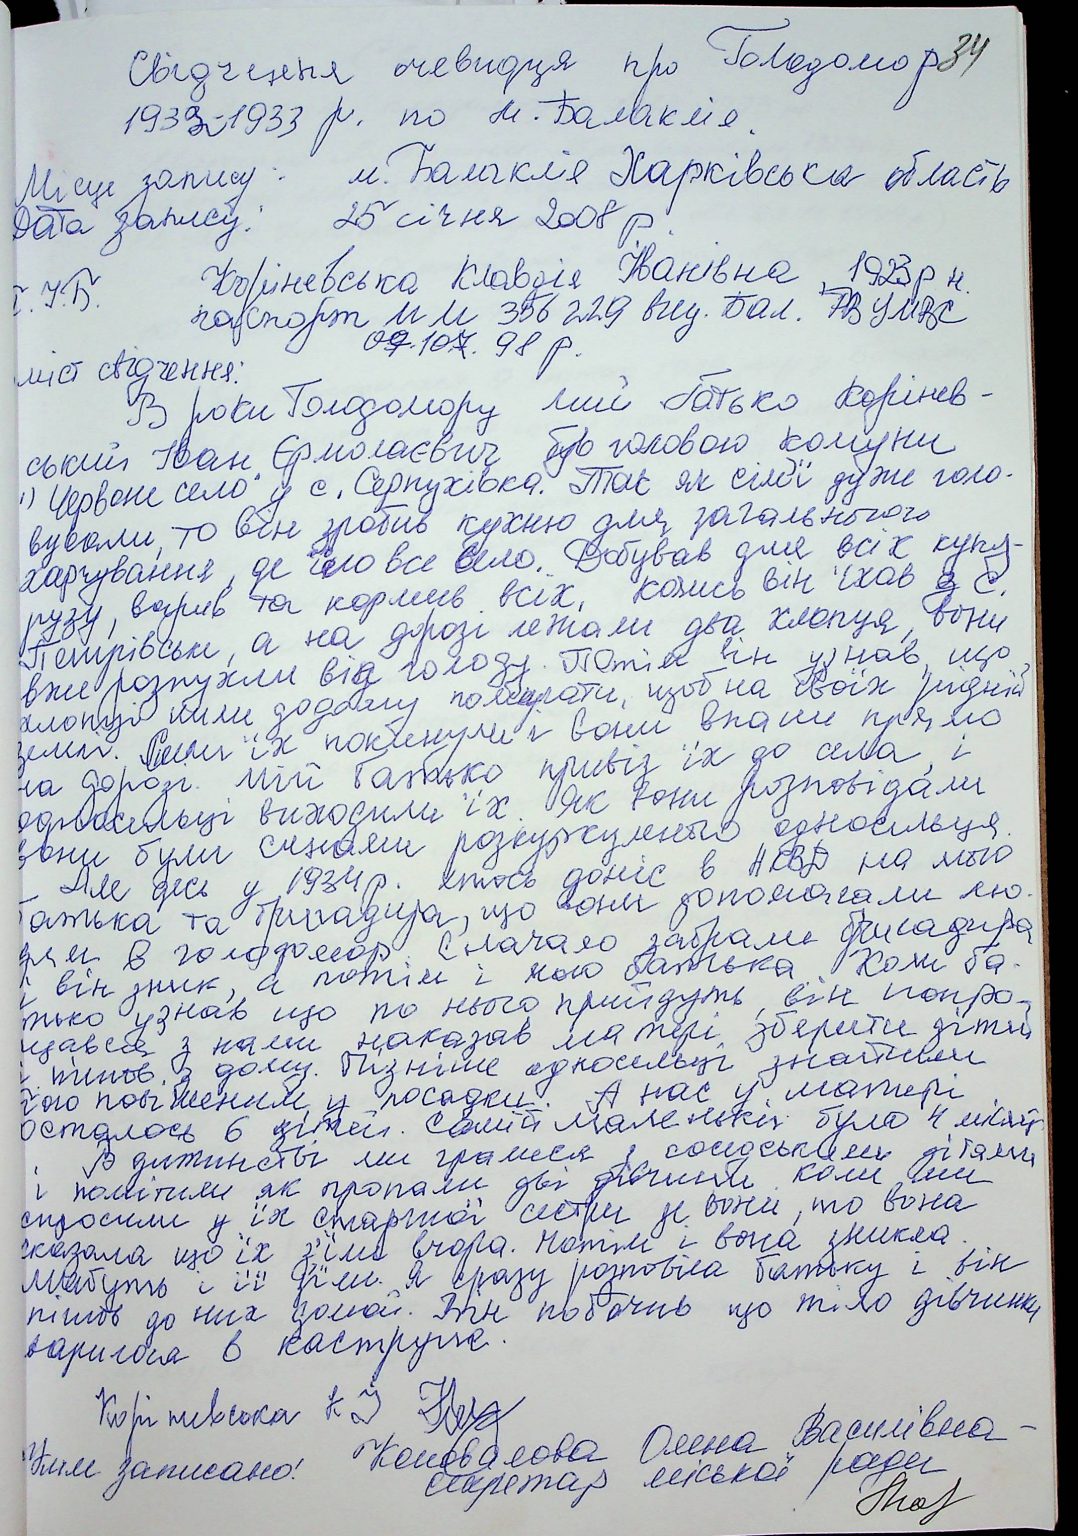 34
Свідчення очевидця про Голодомор
1932-1933 р. по м. Балаклія.
Місце запису: м. Балаклія Харківська область
Дата запису: 25 січня 2008 р.
П.І.Б. Корінєвська Клавдія Іванівна, 1923 р н.
паспорт ММ 356 229 вид. Бал. РВ УМВС
07.107. 98 р.
міст свідчення:
В роки Голодомору мій батько Корінев-
ський Іван Єрмолаєвич був головою комуни
"Червоне село" у с. Серпухівка. Так як сім'ї дуже голо-
вували, то він зробив кухню для загального
харчування, де їло все село. Добував для всіх куку-
рузу, варив та кормив всіх. Колись він їхав з с.
Петрівськ, а на дорозі лежали два хлопця, вони
вже розпухли від голоду. Потім він узнав, що
хлопці йшли додому помирати, щоб на своїй рідній
землі. Сили їх покинули і вони впали прямо
на дорозі. Мій батько привіз їх до села, і
односельці виходили їх. Як вони розповідали
вони були синами розкуркуленого односельця.
Але десь у 1934 р. хтось доніс в НКВД на мого
батька та бригадира, що вони допомагали лю-
дям в голодомор. Сначало забрали бригадира
і він зник, а потім і мого батька. Коли ба-
тько узнав що по нього прийдуть, він попро-
щався з нами наказав матері зберегти дітей
і пішов з дому. Пізніше односельці знайшли
його повішеним у посадки. А нас у матері
осталось 6 дітей. Самій маленькій було 4 місяці.
В дитинстві ми гралися з сусідськими дітьми
і помітили як пропали дві дівчинки. Коли ми
спросили у їх старшої сестри де вони, то вона
сказала що їх з'їли вчора. Потім і вона зникла.
Мабуть і її з'їли. Я сразу розповіла батьку і він
пішов до них домой. Він побачив що тіло дівчинки
варилося в каструлі.
Корінєвська К І
Ким записано: Коновалова Олена Василівна -
секретар міської ради